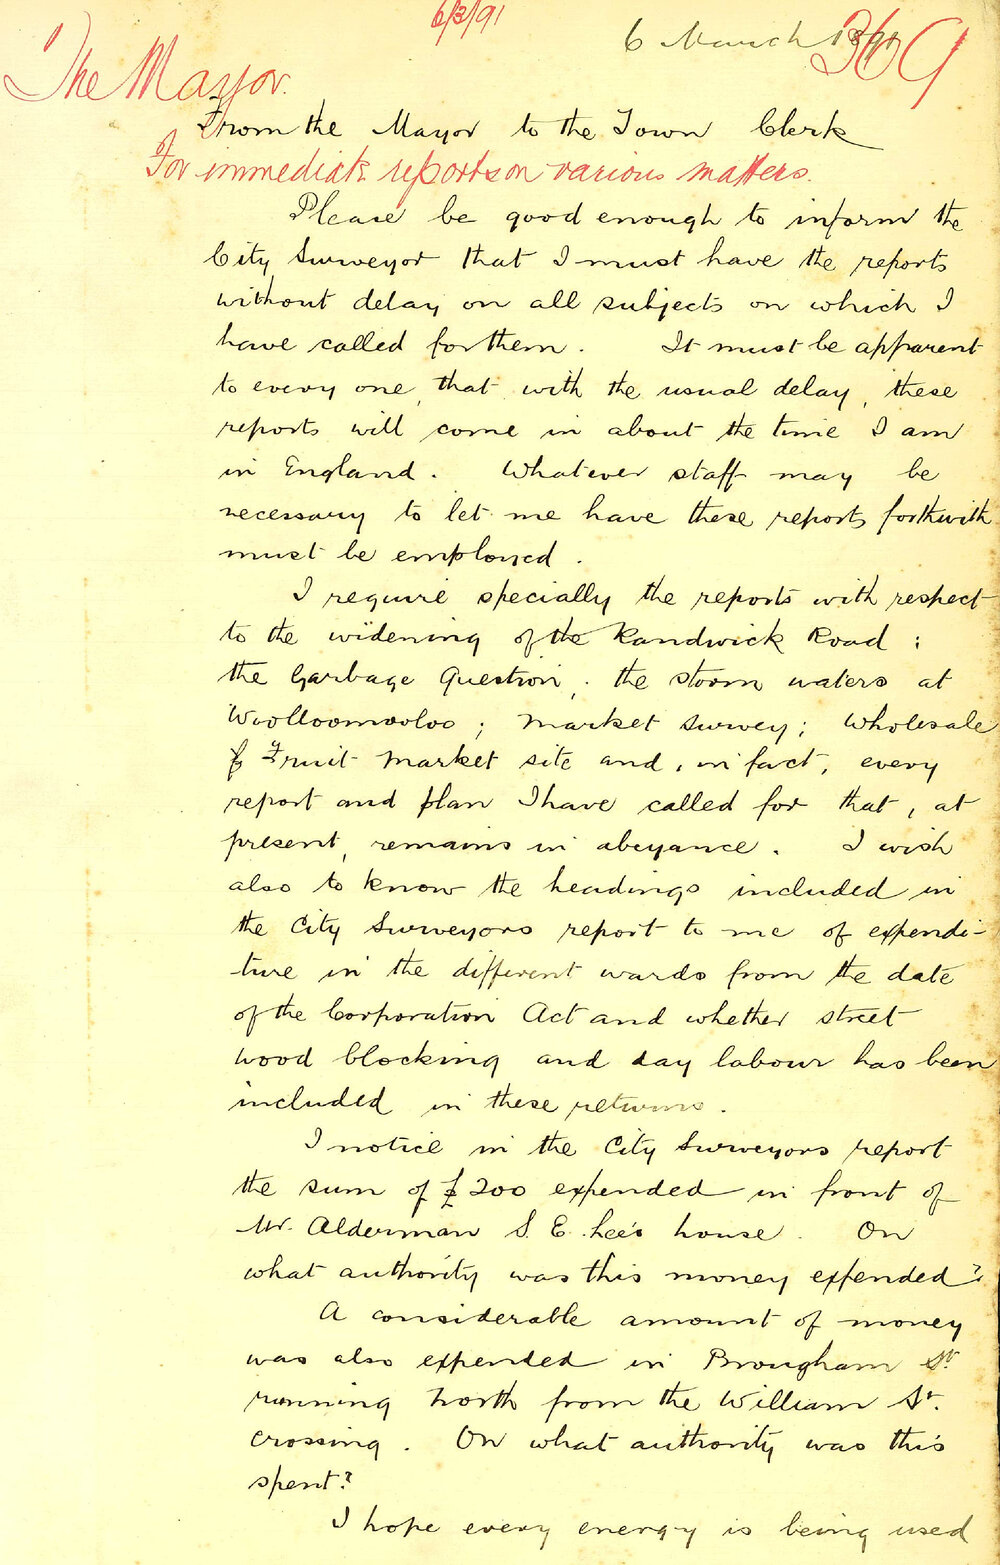 6/3/91
6 March 1891
369
The Mayor.
From the Mayor to the Town Clerk
For immediate reports on various matters.
Please be good enough to inform the
City Surveyor that I must have the reports
without delay on all subjects on which I
have called for them. It must be apparent
to every one, that with the usual delay, these
reports will come in about the time I am
in England. Whatever staff may be
necessary to let me have these reports forthwith
must be employed.
I require specially the reports with respect
to the widening of the Randwick Road:
the Garbage Question; the storm waters at
Woolloomooloo; Market Survey; Wholesale
Fruit Market site and, in fact, every
report and plan I have called for that, at
present, remains in abeyance. I wish
also to know the headings included in
the City Surveyors report to me of expendi-
ture in the different wards from the date
of the Corporation Act and whether street
wood blocking and day labour has been
included in these returns.
I notice in the City Surveyors report
the sum of £200 expended in front of
Mr. Alderman S. E. Lee's house. On
what authority was this money expended?
A considerable amount of money
was also expended in Brougham St.
running North from the William St.
crossing. On what authority was this
spent?
I hope every energy is being used